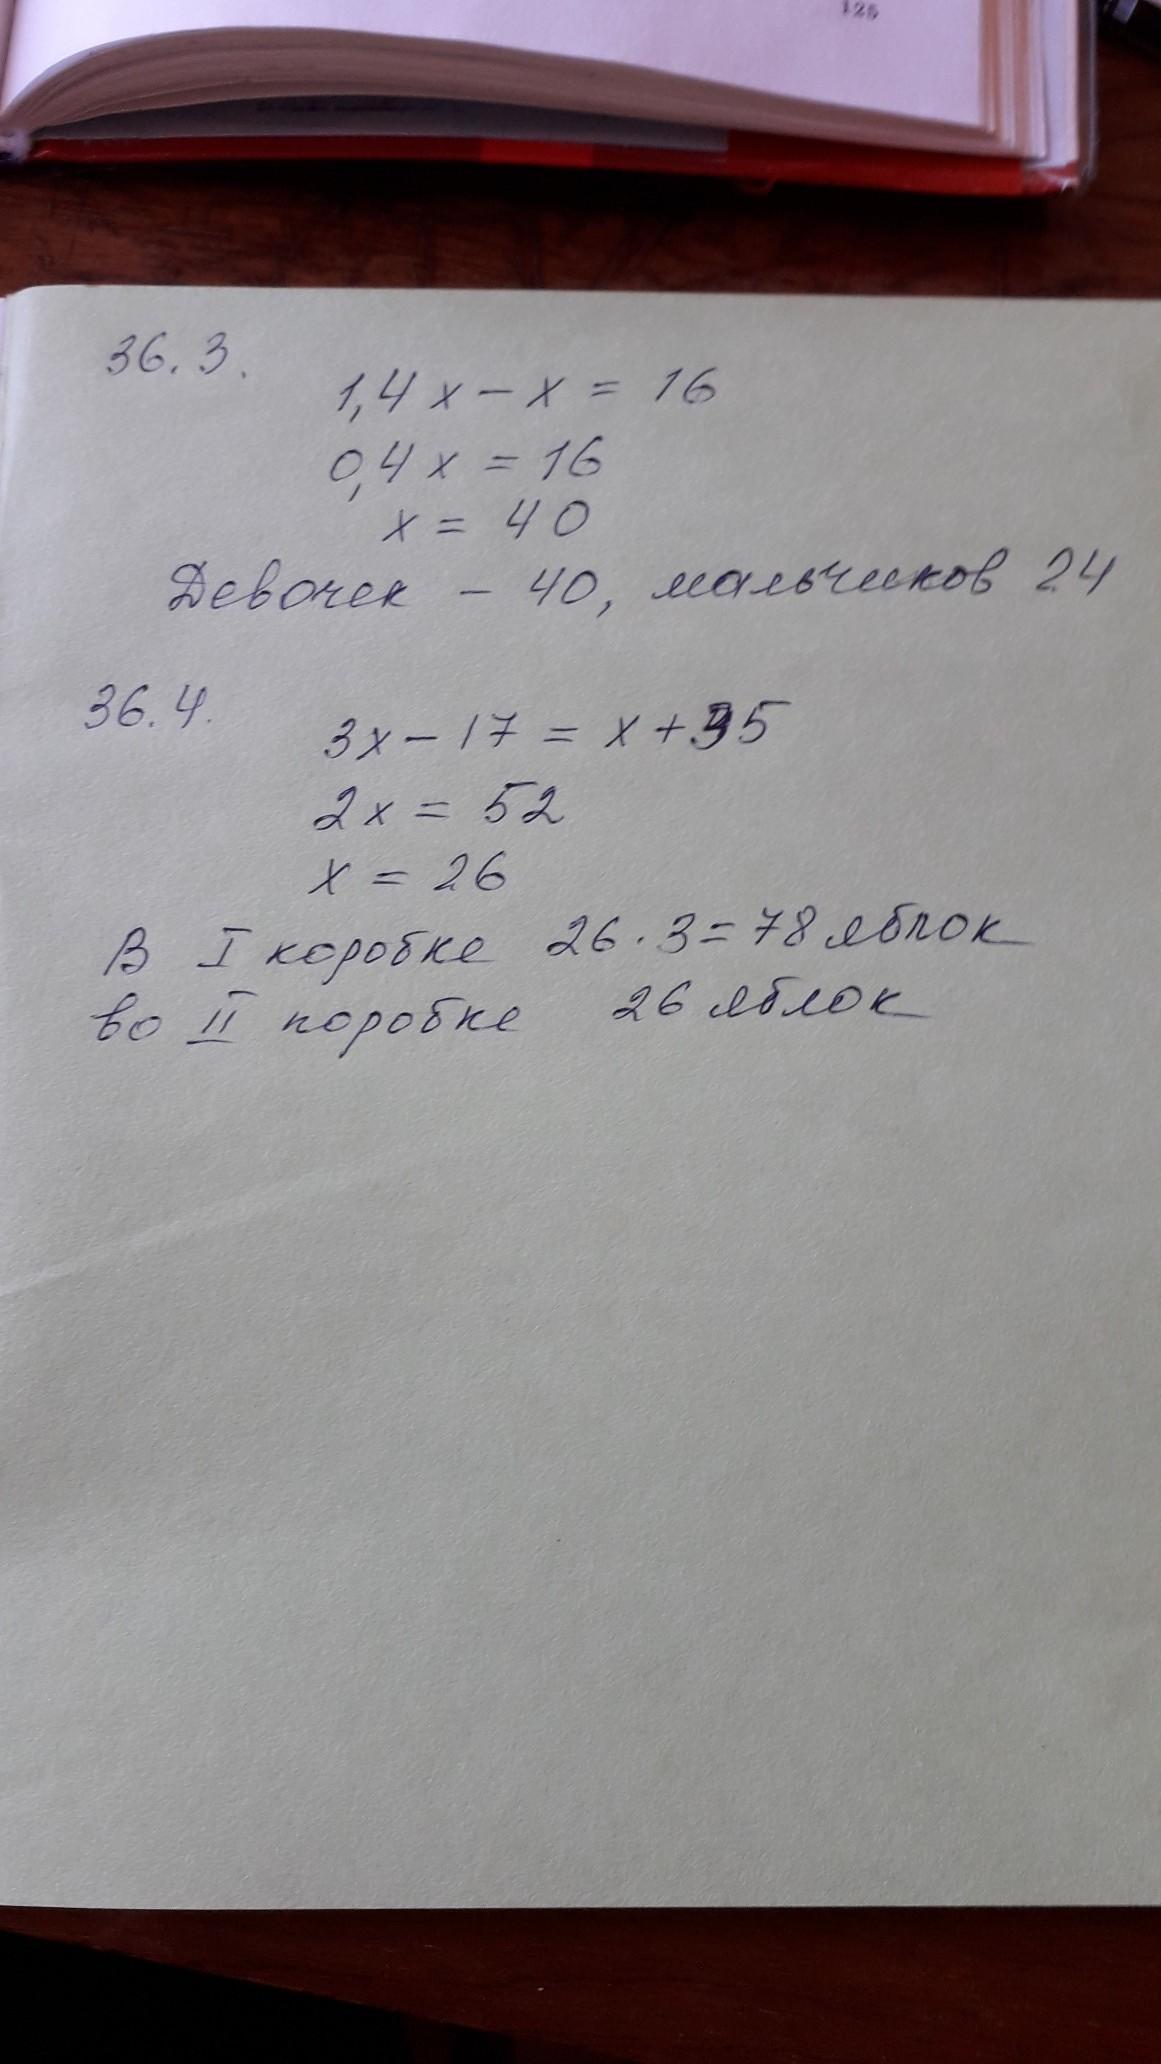 125
36.3.
1,4x - x = 16
0,4x = 16
x = 40
Девочек - 40, мальчиков 24
36.4.
3x - 17 = x + 35
2x = 52
x = 26
В I коробке 26 · 3 = 78 яблок
во II коробке 26 яблок